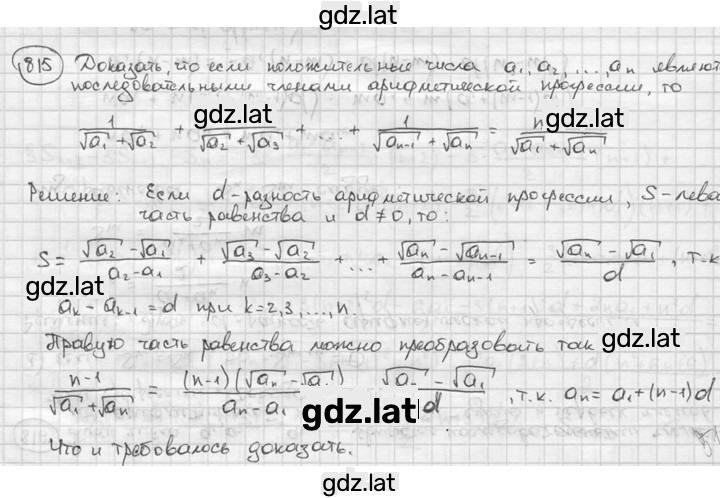 gdz.lat
815 Доказать, что если положительные числа a₁, a₂, ..., aₙ являют
последовательными членами арифметической прогрессии, то
1/(√a₁ + √a₂) + 1/(√a₂ + √a₃) + ... + 1/(√aₙ₋₁ + √aₙ) = n/(√a₁ + √aₙ)
gdz.lat gdz.lat gdz.lat
Решение: Если d - разность арифметической прогрессии, S - лева
часть равенства и d ≠ 0, то:
S = (√a₂ - √a₁)/(a₂ - a₁) + (√a₃ - √a₂)/(a₃ - a₂) + ... + (√aₙ - √aₙ₋₁)/(aₙ - aₙ₋₁) = (√aₙ - √a₁)/d, т.к
gdz.lat
aₖ - aₖ₋₁ = d при k = 2, 3, ..., n.
Правую часть равенства можно преобразовать так
gdz.lat
(n-1)/(√a₁ + √aₙ) = ((n-1)(√aₙ - √a₁))/(aₙ - a₁) (√a - √a₁)/d, т.к. aₙ = a₁ + (n-1)d
gdz.lat
gdz.lat
Что и требовалось доказать.
gdz.lat